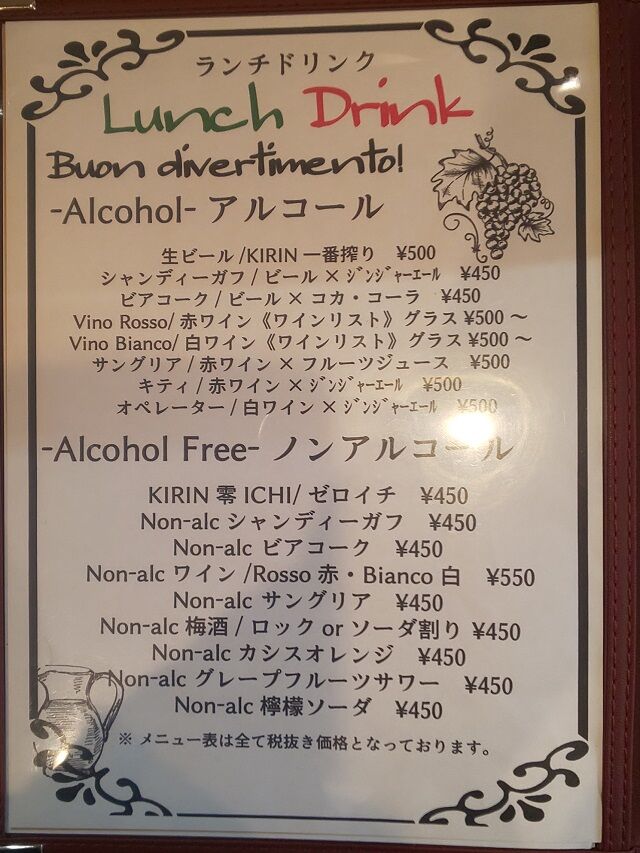 ランチドリンク
Lunch Drink
Buon divertimento!
-Alcohol- アルコール
生ビール/KIRIN 一番搾り ¥500
シャンディーガフ/ビール×ｼﾞﾝｼﾞｬｰｴｰﾙ ¥450
ビアコーク/ビール×コカ・コーラ ¥450
Vino Rosso/赤ワイン《ワインリスト》グラス¥500～
Vino Bianco/白ワイン《ワインリスト》グラス¥500～
サングリア/赤ワイン×フルーツジュース ¥500
キティ/赤ワイン×ｼﾞﾝｼﾞｬｰｴｰﾙ ¥500
オペレーター/白ワイン×ｼﾞﾝｼﾞｬｰｴｰﾙ ¥500
-Alcohol Free- ノンアルコール
KIRIN 零 ICHI/ ゼロイチ ¥450
Non-alc シャンディーガフ ¥450
Non-alc ビアコーク ¥450
Non-alc ワイン/Rosso 赤・Bianco 白 ¥550
Non-alc サングリア ¥450
Non-alc 梅酒/ロック or ソーダ割り ¥450
Non-alc カシスオレンジ ¥450
Non-alc グレープフルーツサワー ¥450
Non-alc 檸檬ソーダ ¥450
※ メニュー表は全て税抜き価格となっております。